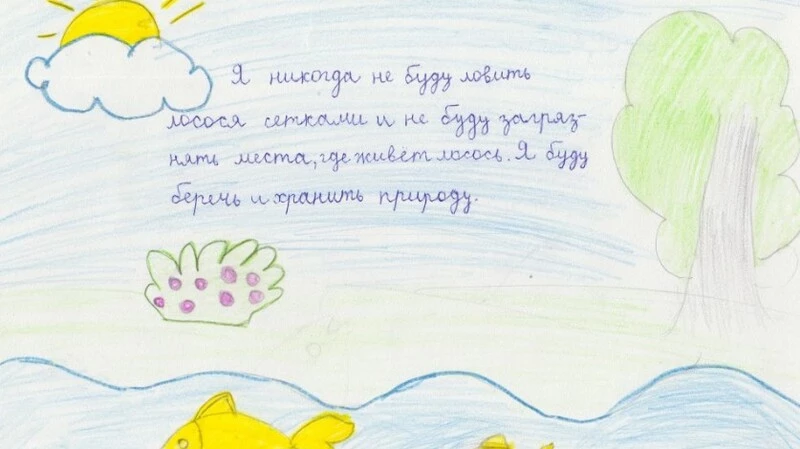 Я никогда не буду ловить
лосося сетками и не буду загряз-
нять места, где живёт лосось. Я буду
беречь и хранить природу.